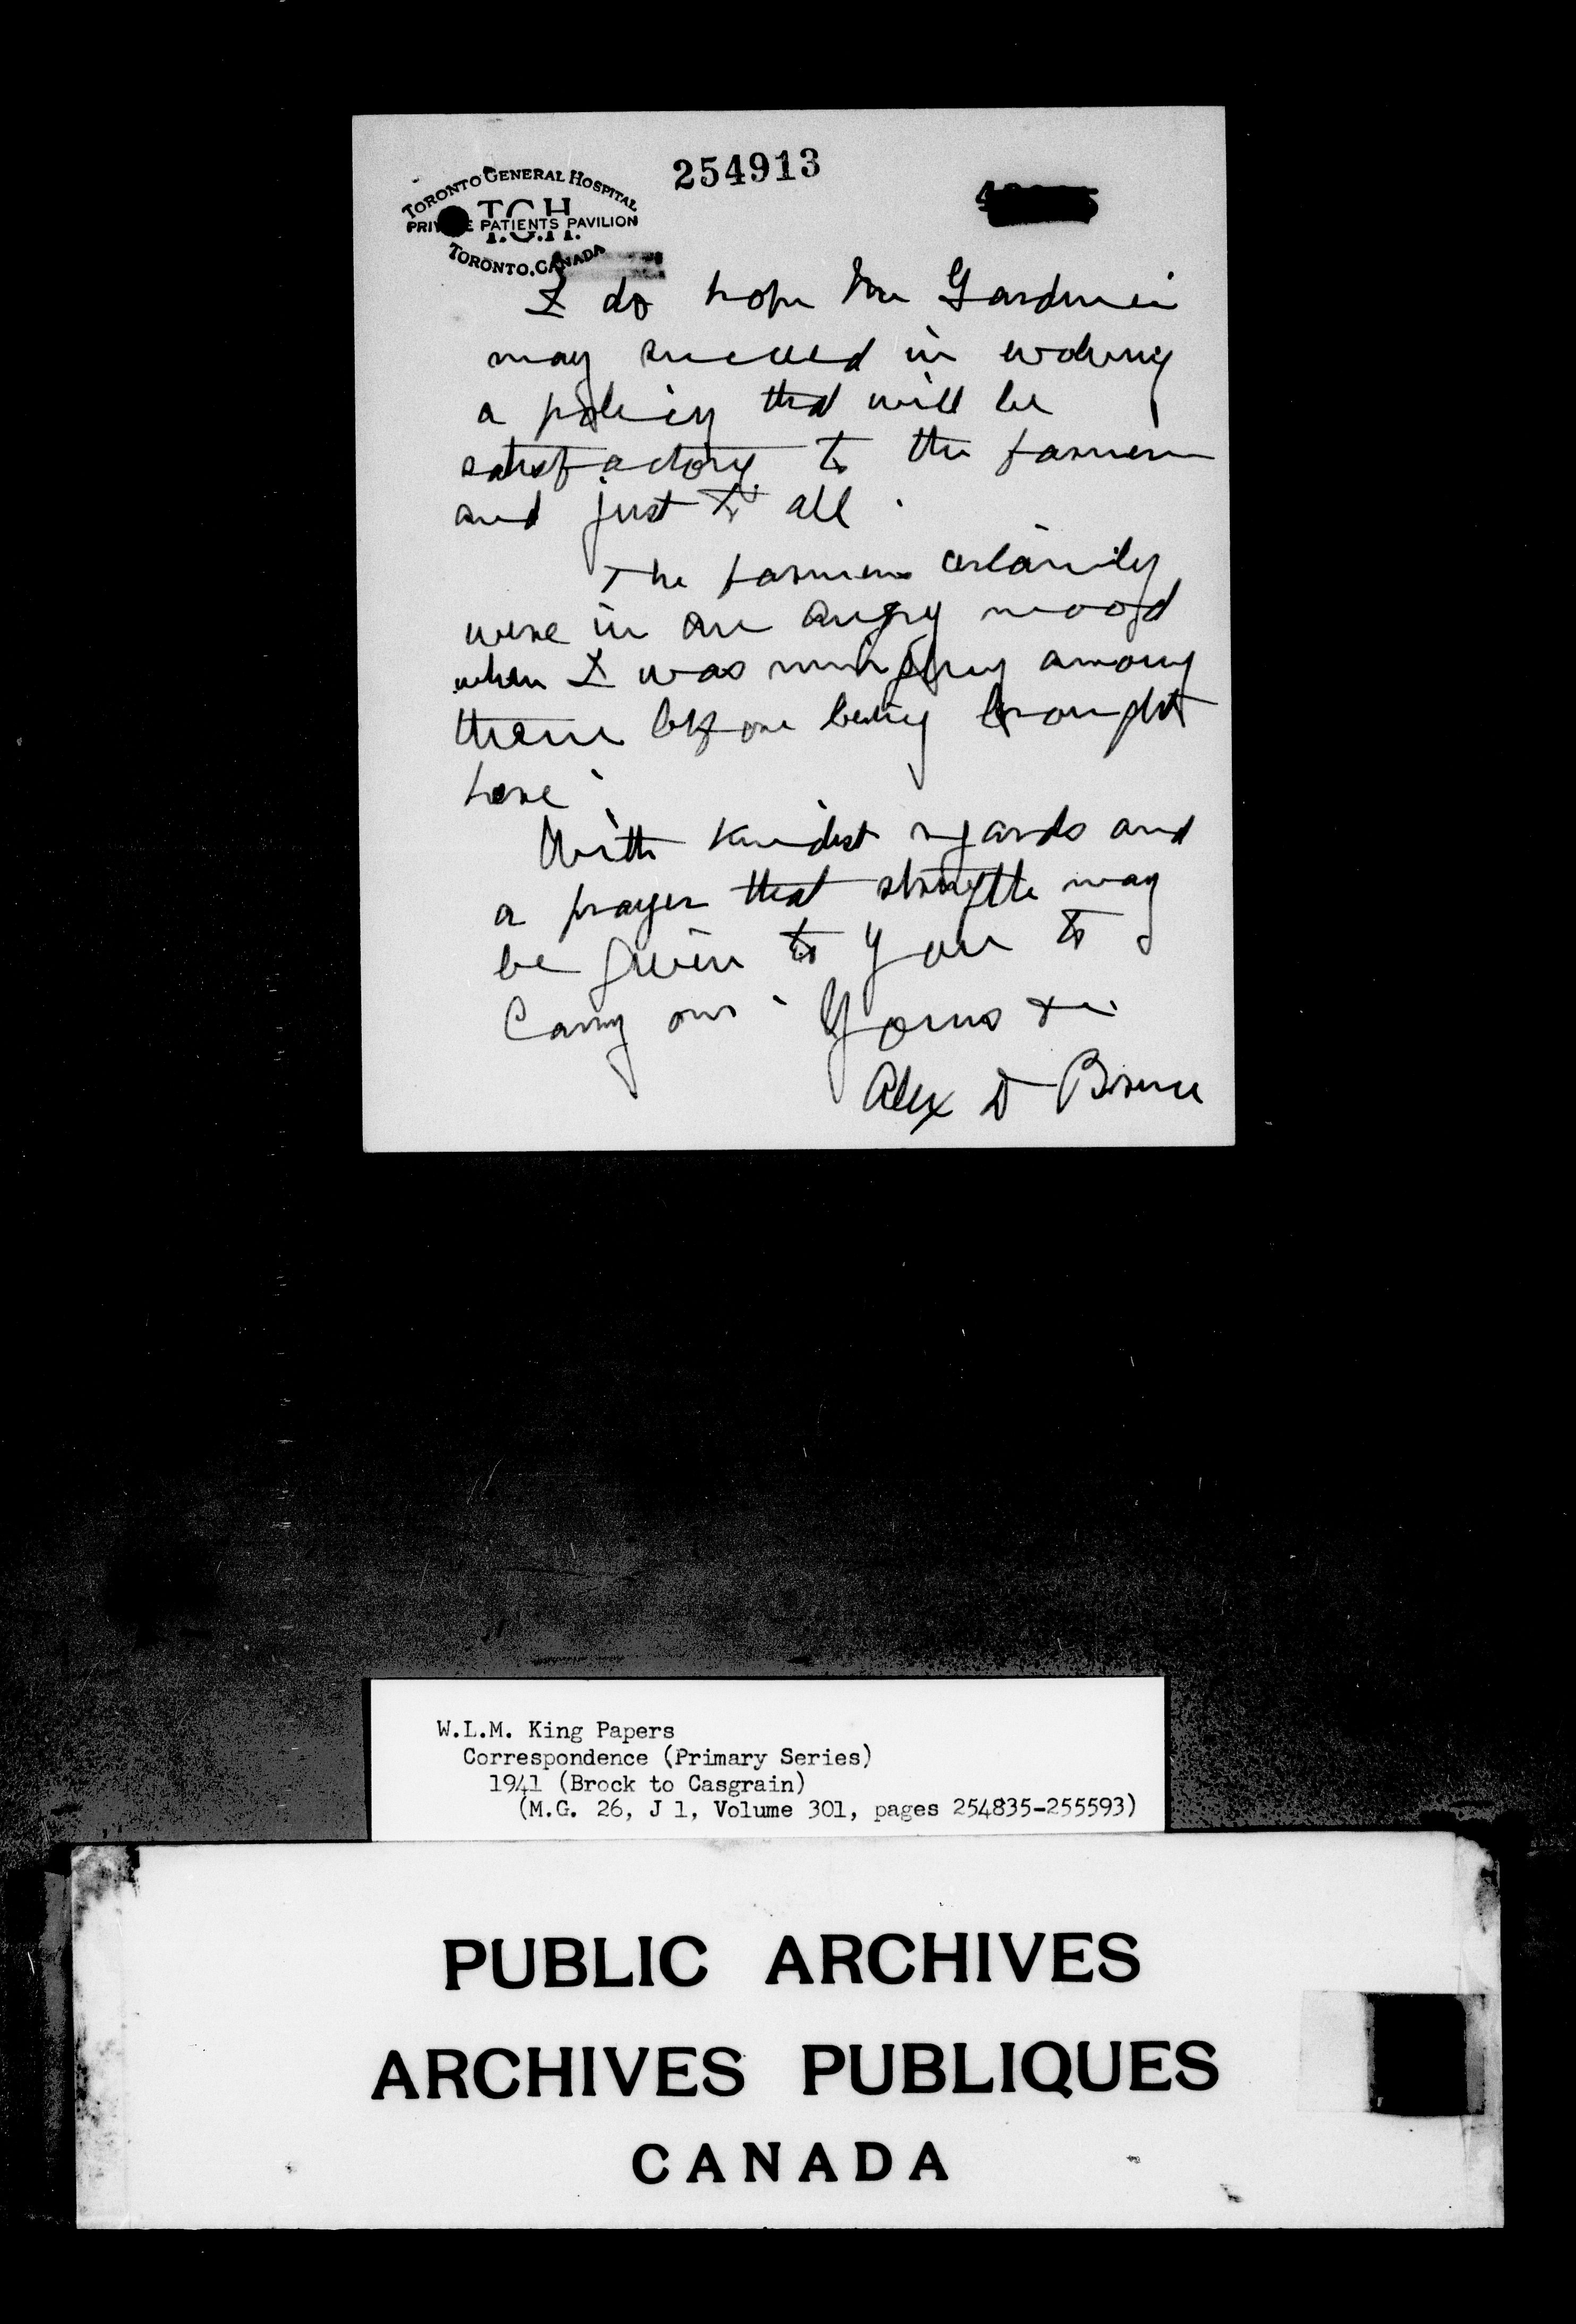 254913
TORONTO GENERAL HOSPITAL
T.G.H.
PRIVATE PATIENTS PAVILION
TORONTO, CANADA
I do hope Mr Gardiner
may succeed in evolving
a policy that will be
satisfactory to the farmers
and just to all.
The farmers certainly
were in an angry mood
when I was mingling among
them before being brought
here.
With kindest regards and
a prayer that strength may
be given to you to
Carry on. Yours
Alex D Bruce
W.L.M. King Papers
Correspondence (Primary Series)
1941 (Brock to Casgrain)
(M.G. 26, J 1, Volume 301, pages 254835-255593)
PUBLIC ARCHIVES
ARCHIVES PUBLIQUES
CANADA